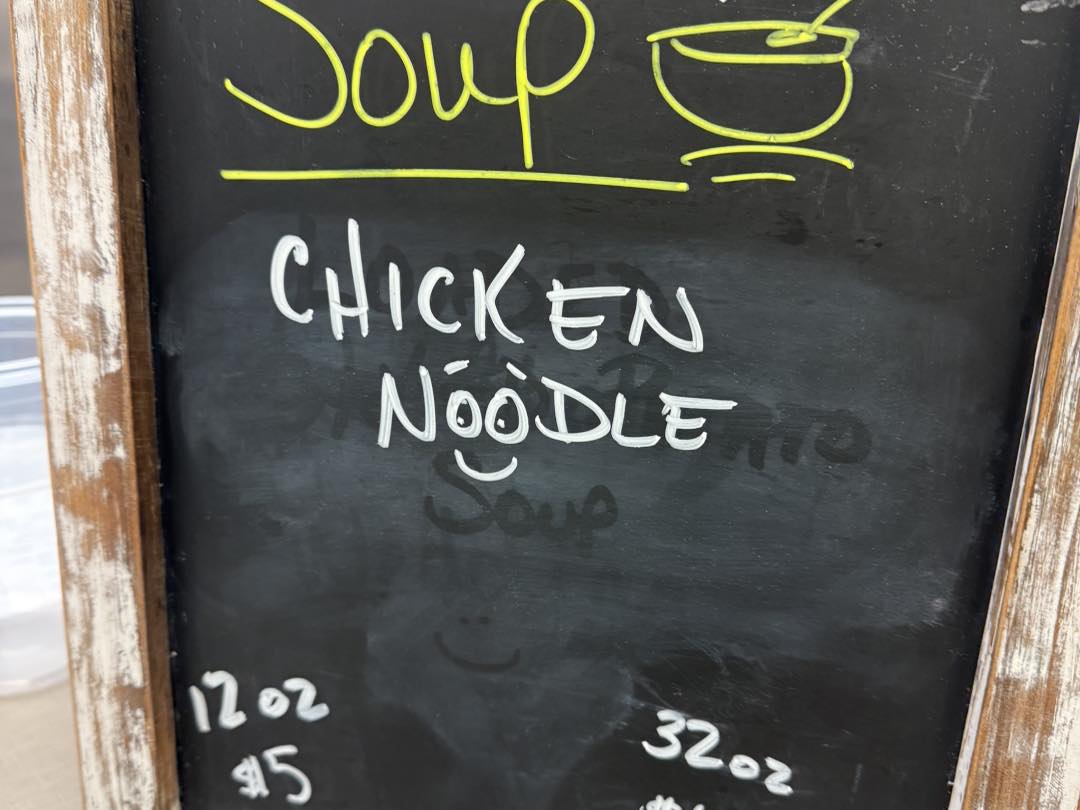 Soup
CHICKEN
NOODLE
Soup
12 oz
$5
32 oz